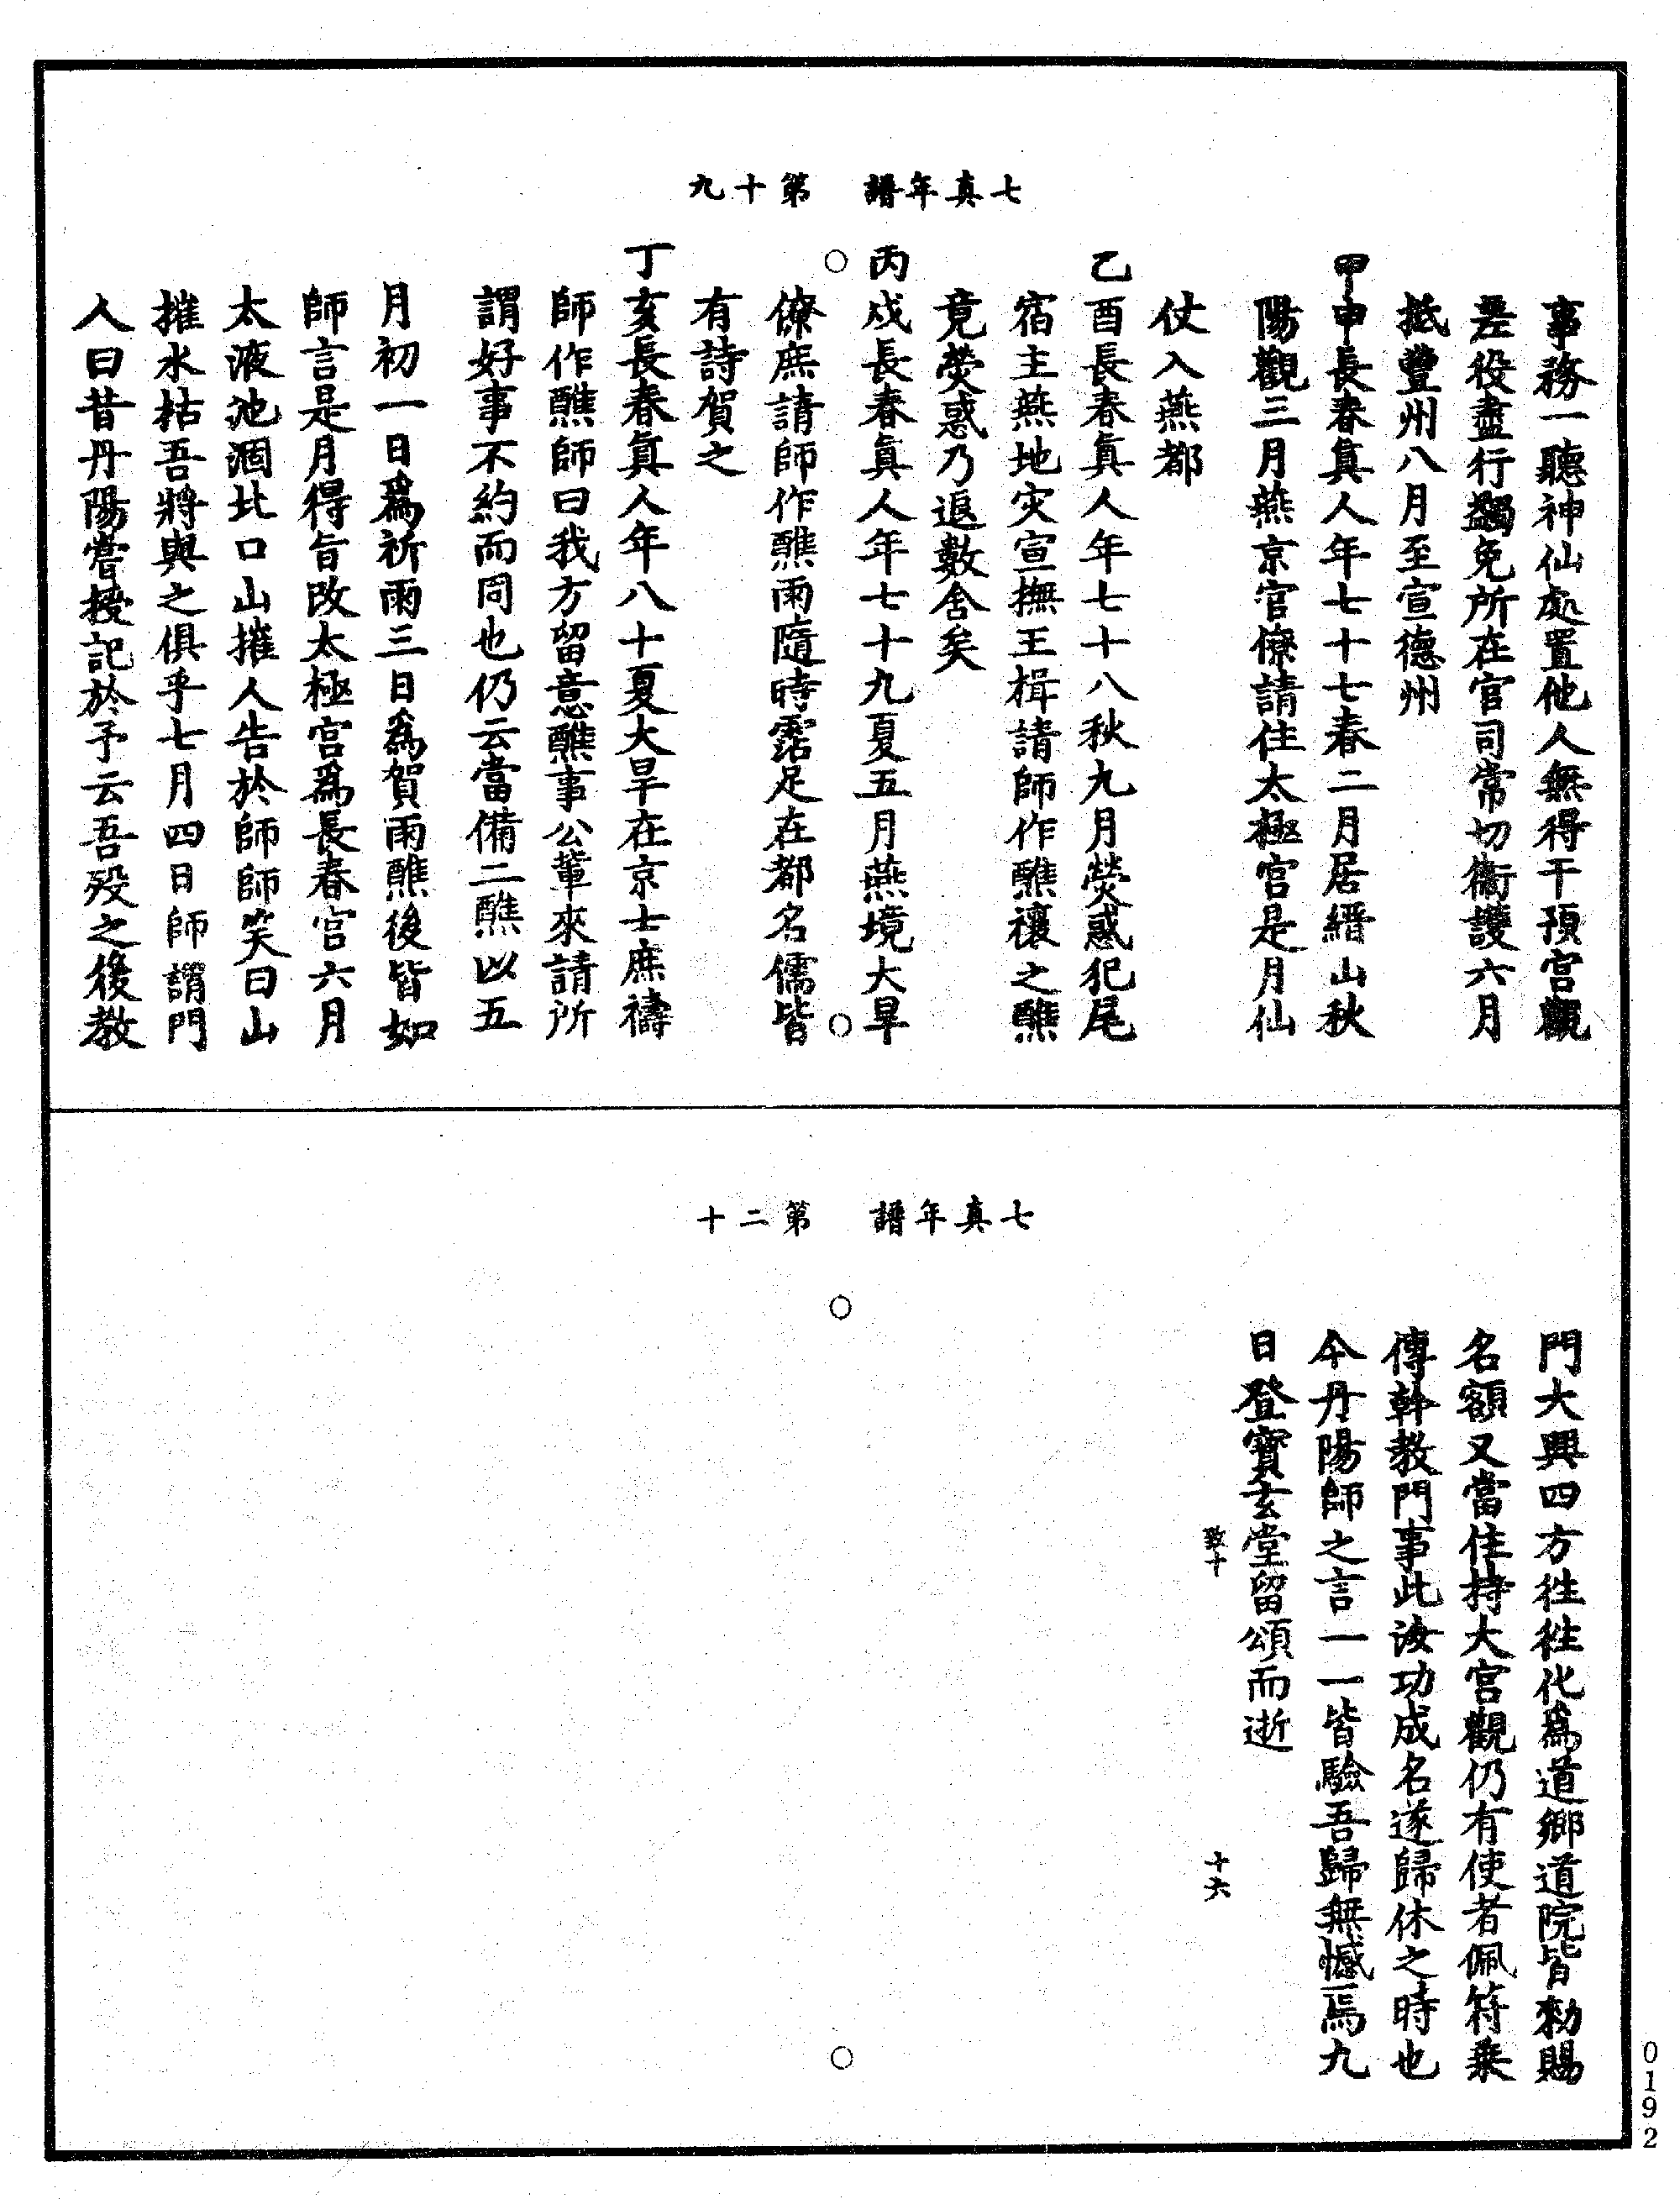 七真年譜　第十九
事務一聽神仙處置他人無得干預宮觀
差役盡行蠲免所在官司常切衛護六月
抵豐州八月至宣德州
甲申長春真人年七十七春二月居縉山秋
陽觀三月燕京官僚請住太極宮是月仙
仗入燕都
乙酉長春真人年七十八秋九月熒惑犯尾
宿主燕地灾宣撫王楫請師作醮禳之醮
竟熒惑乃退數舍矣
丙戍長春真人年七十九夏五月燕境大旱
僚庶請師作醮雨隨時霑足在都名儒皆
有詩賀之
丁亥長春真人年八十夏大旱在京士庶禱
師作醮師曰我方留意醮事公輩來請所
謂好事不約而同也仍云當備二醮以五
月初一日爲祈雨三日爲賀雨醮後皆如
師言是月得旨改太極宮爲長春宮六月
太液池涸北口山摧人告於師師笑曰山
摧水枯吾將與之俱乎七月四日師謂門
人曰昔丹陽嘗授記於予云吾殁之後教
七真年譜　第二十
門大興四方徃徃化爲道鄉道院皆勑賜
名額又當住持大宮觀仍有使者佩符乗
傳幹教門事此汝功成名遂歸休之時也
今丹陽師之言一一皆驗吾歸無憾焉九
日登寶玄堂留頌而逝
致十　十六
0192